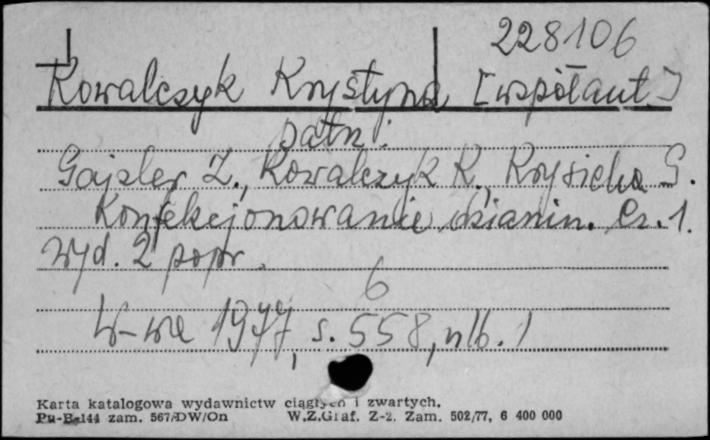 228106
Kowalczyk Krystyna [współaut.]
patrz:
Gajzler Z., Kowalczyk K., Krysicka G.
Konfekcjonowanie dzianin. Cz. 1.
Wyd. 2 popr.
6
W-wa 1977, s. 558, nlb. 1
Karta katalogowa wydawnictw ciągłych i zwartych.
Pu-B-144 zam. 567/DW/On W.Z.Graf. Z-2. Zam. 502/77, 6 400 000